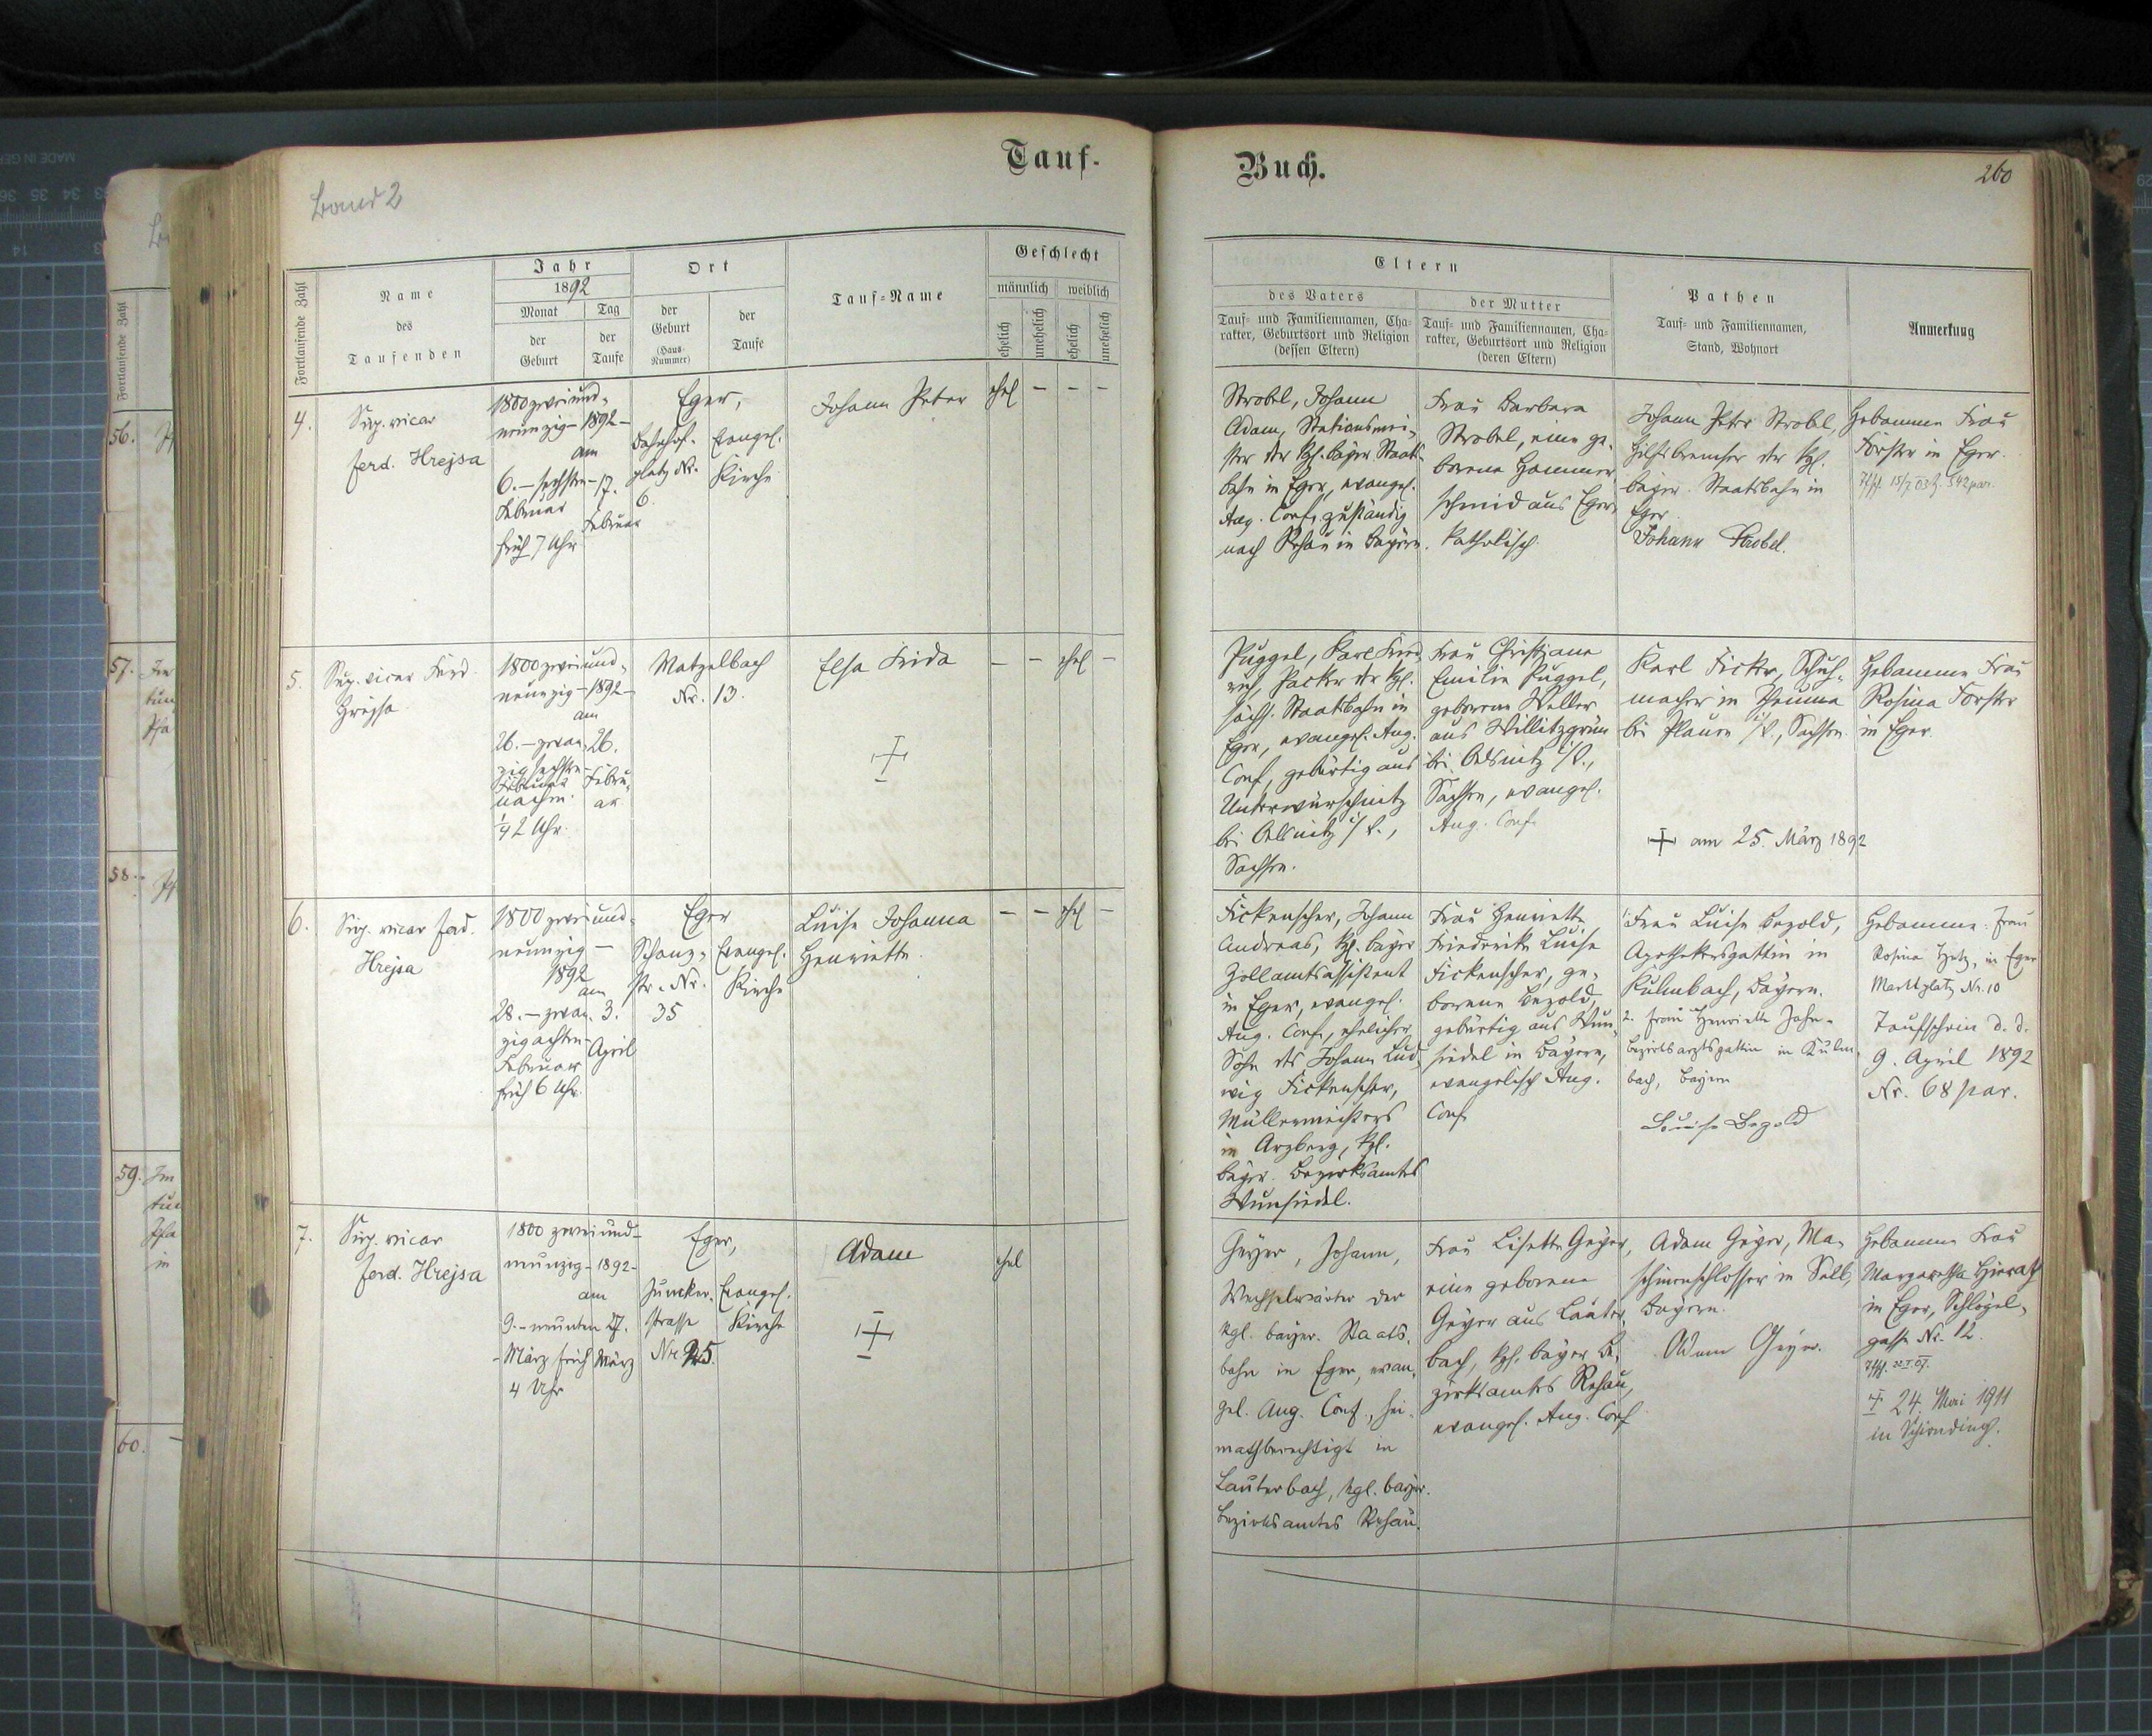 Band 2
Tauf-
Buch.
260
Fortlaufende Zahl
Name
des
Taufenden
Jahr
1892
Monat
der
Geburt
Tag
der
Taufe
Ort
der
Geburt
(Haus-
Nummer)
der
Taufe
Tauf-Name
Geschlecht
männlich
weiblich
ehelich
unehelich
ehelich
unehelich
Eltern
des Vaters
Tauf- und Familiennamen, Cha-
rakter, Geburtsort und Religion
(dessen Eltern)
der Mutter
Tauf- und Familiennamen, Cha-
rakter, Geburtsort und Religion
(deren Eltern)
Pathen
Tauf- und Familiennamen,
Stand, Wohnort
Anmerkung
4.
Sup. vicar
Ferd. Hrejsa
1800 zweiund-
neunzig - 1892 -
am
6. - sechsten -
Februar
früh 7 Uhr
17.
Februar
Eger,
Bahnhof-
platz Nr.
6.
Evangel.
Kirche
Johann Peter
ehel
- - -
Strobel, Johann
Adam, Stationsmei-
ster der kgl. bayer. Staats-
bahn in Eger, evangel.
Aug. Conf. zuständig
nach Rehau in Bayern.
Frau Barbara
Strobel, eine ge-
borene Hammer-
schmid aus Eger,
katholisch.
Johann Peter Strobel,
Hilfsbremser der kgl.
bayer. Staatsbahn in
Eger.
Johann Strobel.
Hebamme Frau
Forster in Eger.
5.
Sup. vicar Ferd.
Hrejsa
1800 zweiund-
neunzig - 1892 -
am
26. - zwan-
zigsechsten -
Februar
nachm.
1/4 2 Uhr.
26.
Febru-
ar
Matzelbach
Nr. 13.
Elsa Frida
- - ehel -
Puggel, Karl Fried-
rich, Packer der kgl.
sächs. Staatsbahn in
Eger, evangel. Aug.
Conf., gebürtig aus
Unterwürschnitz
bei Oelsnitz i/V.,
Sachsen.
Frau Christiane
Emilie Puggel,
geborene Weller
aus Willitzgrün
bei Oelsnitz i/V.,
Sachsen, evangel.
Aug. Conf.
Karl Ficker, Schuh-
macher in Theuma
bei Plauen i/V., Sachsen.
+ am 25. März 1892
Hebamme Frau
Rosina Forster
in Eger.
6.
Sup. vicar Ferd.
Hrejsa
1800 zweiund-
neunzig -
1892
am
28. - zwan-
zigachten -
Februar
früh 6 Uhr.
3.
April
Eger
Schanz-
str. Nr.
35
Evangel.
Kirche
Luise Johanna
Henriette.
- - ehel -
Fickenscher, Johann
Andreas, kgl. bayer
Zollamtsassistent
in Eger, evangel.
Aug. Conf., ehelicher
Sohn des Johann Lud-
wig Fickenscher,
Müllermeisters
in Arzberg, kgl.
bayer. Bezirksamtes
Wunsiedel.
Frau Henriette
Friederike Luise
Fickenscher, ge-
borene Bezold,
gebürtig aus Wun-
siedel in Bayern,
evangelisch Aug.
Conf.
1. Frau Luise Bezold,
Apothekersgattin in
Kulmbach, Bayern.
2. Frau Henriette Jahn-
Bezirksarztsgattin in Kulm-
bach, Bayern
Louise Bezold
Hebamme: Frau
Rosina in Eger
Marktplatz Nr. 10
Taufschein d. d.
9. April 1892
Nr. 68 par.
7.
Sup. vicar
Ferd. Hrejsa
1800 zweiund-
neunzig - 1892 -
am
9. - neunten
- März früh
4 Uhr
27.
März
Eger,
Juncker-
strasse
Nr. 25.
Evangel.
Kirche
Adam
ehel
Geyer, Johann,
Wechselwärter der
kgl. bayer. Staats-
bahn in Eger, evan-
gel. Aug. Conf., hei-
mathberechtigt in
Lauterbach, kgl. bayer.
Bezirksamtes Rehau.
Frau Lisette Geyer,
eine geborene
Geyer aus Lauter-
bach, kgl. bayer Be-
zirksamtes Rehau,
evangel. Aug. Conf
Adam Geyer, Ma-
schinenschlosser in Selb,
Bayern.
Adam Geyer.
Hebamme Frau
Margaretha
in Eger, Schlögel-
gasse Nr. 12.
+ 24. Mai 1911
in Schirnding.
56.
57.
58.
59.
60.